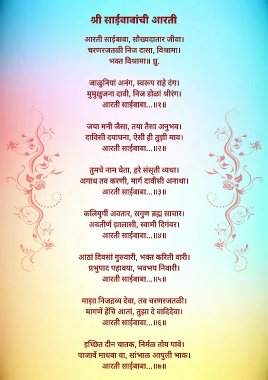 श्री साईबाबांची आरती
आरती साईबाबा, सौख्यदातार जीवा।
चरणरजतळी निज दासा, विश्रामा।
भक्त विश्रामा॥ धृ.
जाळुनियां अनंग, स्वरूप राहे दंग।
मुमुक्षुजना दावी, निज डोळां श्रीरंग।
आरती साईबाबा...॥१॥
जया मनी जैसा, तया तैसा अनुभव।
दाविसी दयाघना, ऐसी ही तुझी माव।
आरती साईबाबा...॥२॥
तुमचे नाम घेता, हरे संसृती व्यथा।
अगाध तव करणी, मार्ग दावीसी अनाथा।
आरती साईबाबा...॥३॥
कलियुगीं अवतार, सगुण ब्रह्म साचार।
अवतीर्ण झालासी, स्वामी दिगंबर।
आरती साईबाबा...॥४॥
आठां दिवसां गुरुवारी, भक्त करिती वारी।
प्रभुपाद पहावया, भवभय निवारी।
आरती साईबाबा...॥५॥
माझा निजद्रव्य ठेवा, तव चरणरजतळी।
मागणें हेंचि आतां, तुझा दे वादिदेवा।
आरती साईबाबा...॥६॥
इच्छित दीन चातक, निर्मळ तोय पावे।
पाजावें माधवा या, सांभाळ आपुली भाक।
आरती साईबाबा...॥७॥